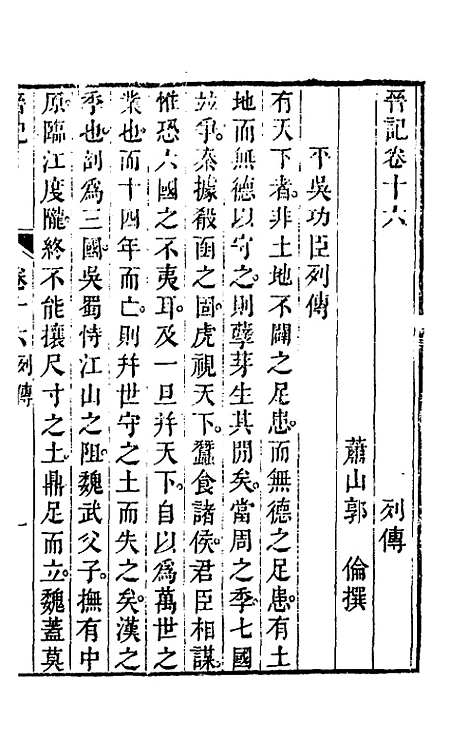 晉記卷十六 列傳
蕭山郭 倫撰
平吳功臣列傳
有天下者非土地不闢之足患而無德之足患有土
地而無德以守之則孽芽生其閒矣當周之季七國
並爭秦據殽函之固虎視天下蠶食諸侯君臣相謀
惟恐六國之不夷耳及一旦幷天下自以爲萬世之
業也而十四年而亡則幷世守之土而失之矣漢之
季也剖爲三國吳蜀恃江山之阻魏武父子撫有中
原臨江度隴終不能攘尺寸之土鼎足而立魏蓋莫
晉記 卷十六列傳 一